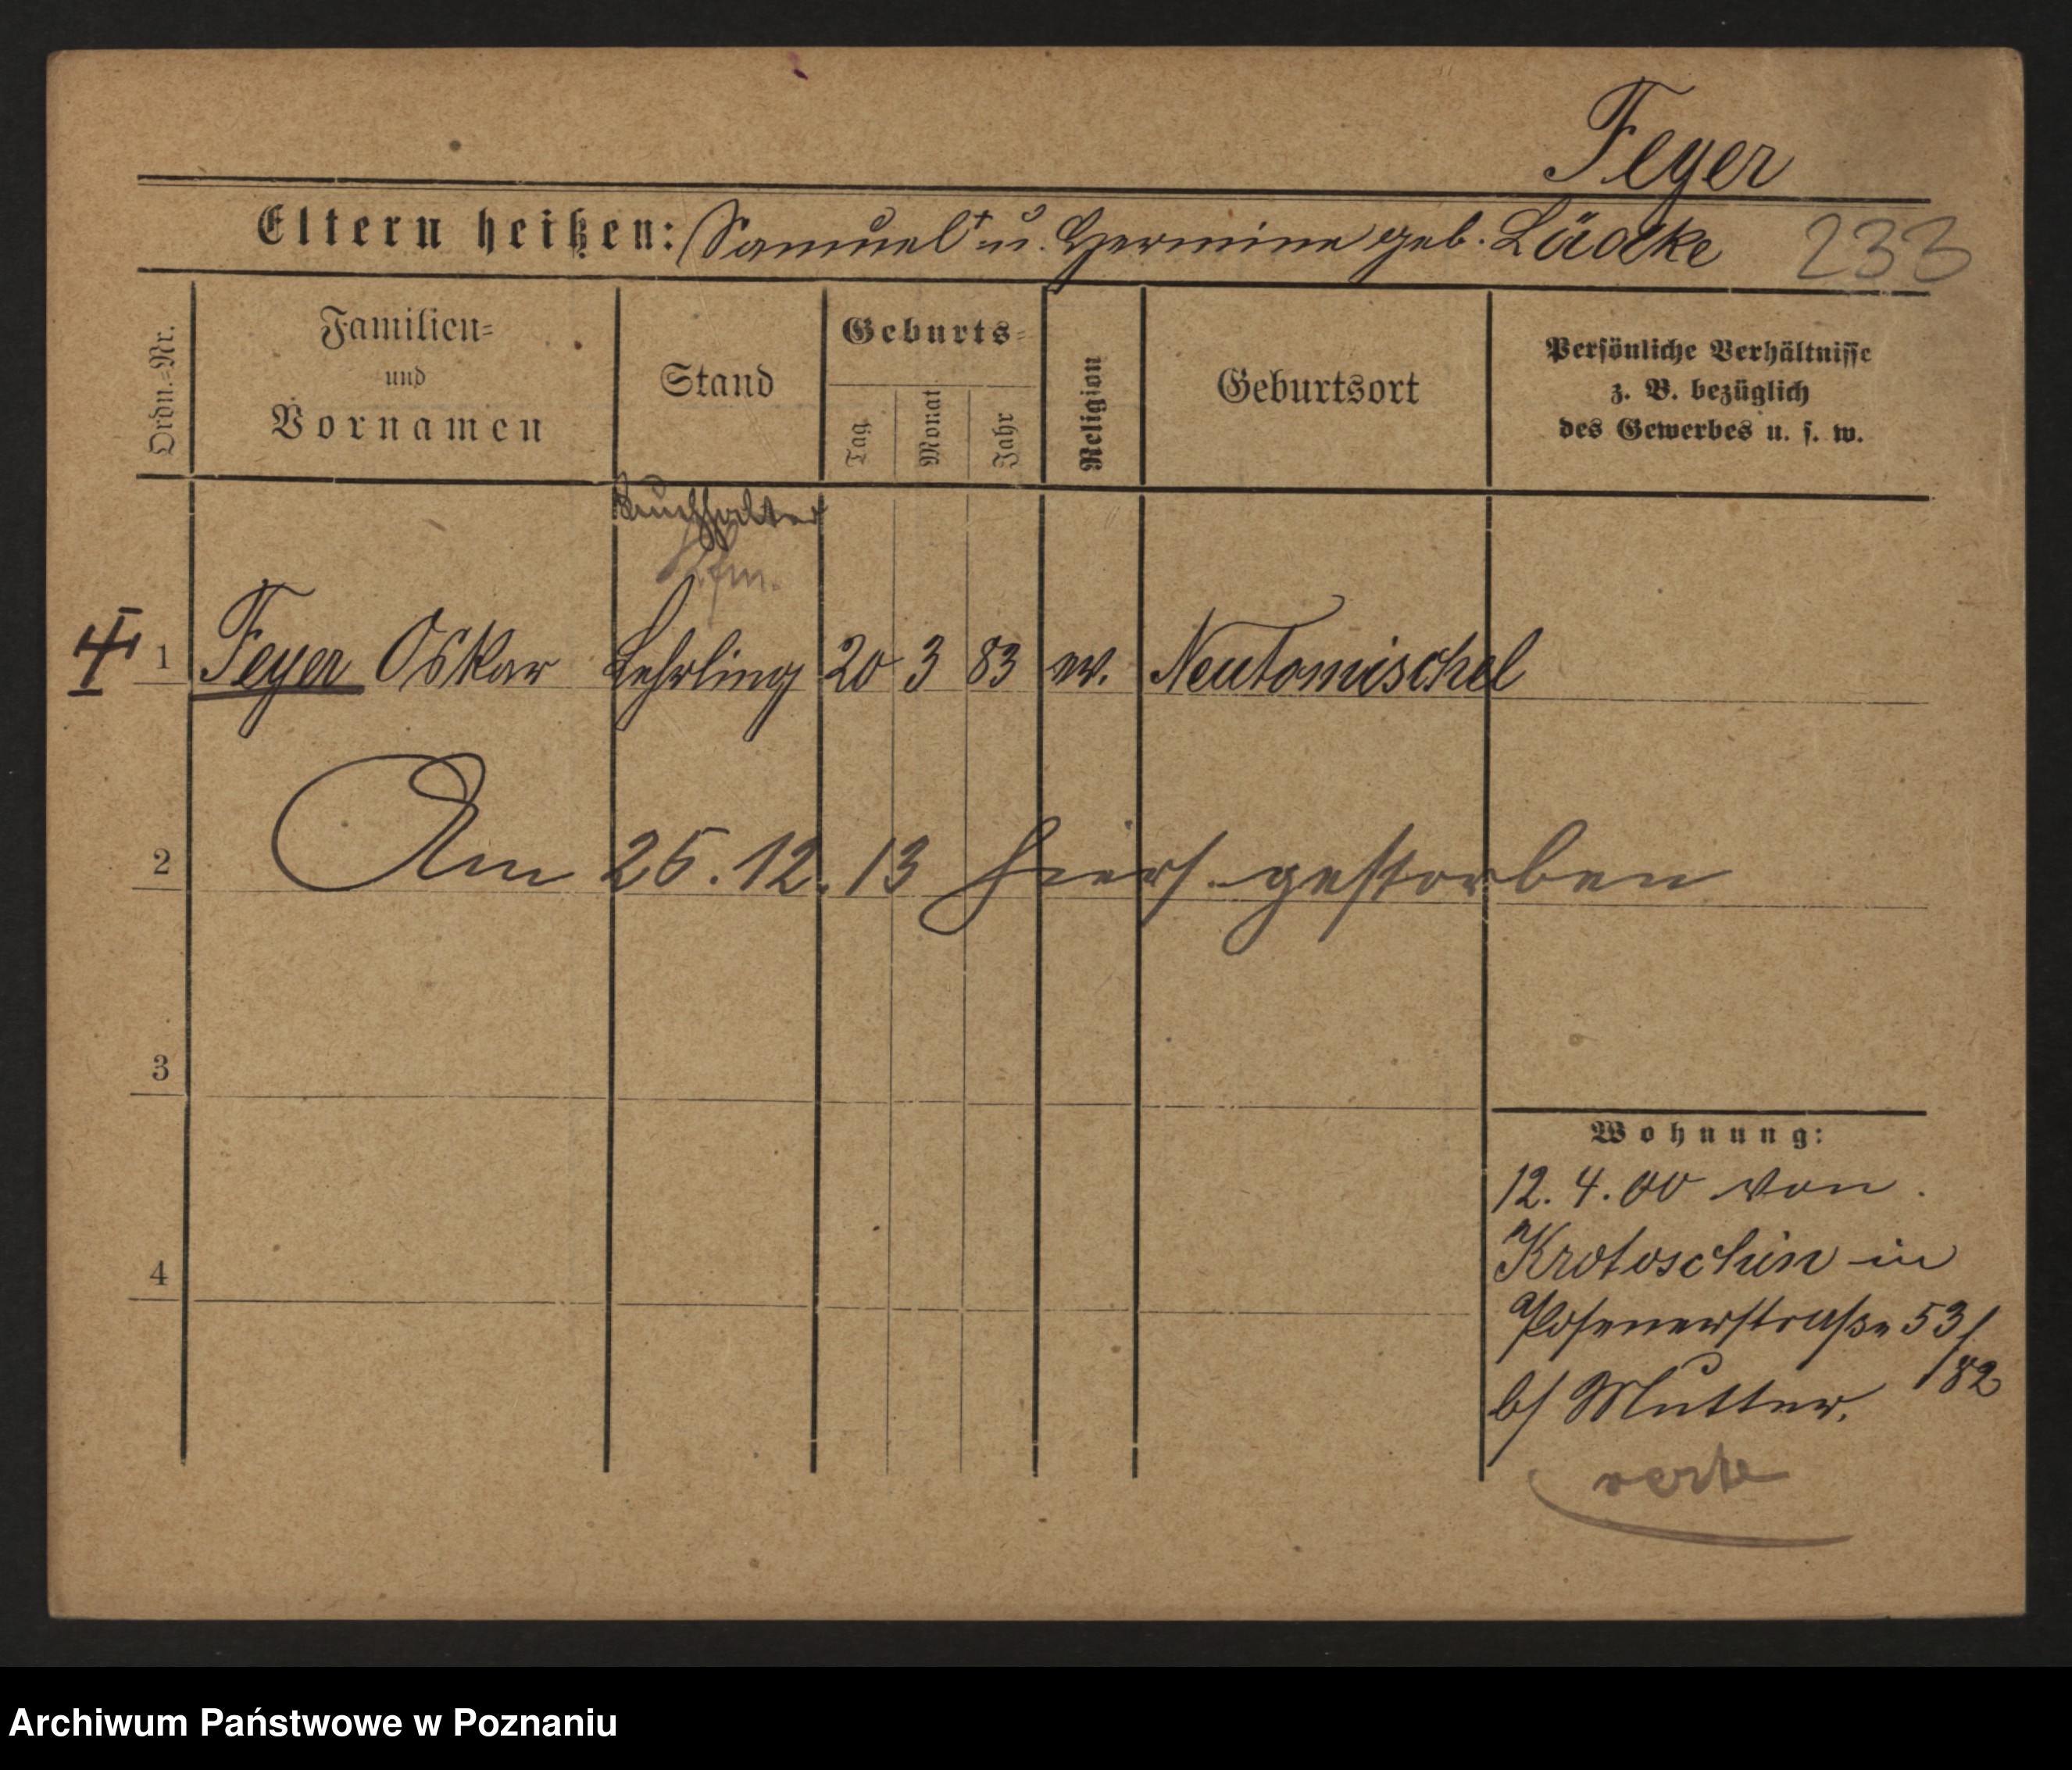 Feyer
Eltern heißen: Samuel † u. Hermine geb. Lüdke 233
Ordn.-Nr.
Familien-
und
Vornamen
Stand
Geburts-
Tag
Monat
Jahr
Religion
Geburtsort
Persönliche Verhältnisse
z. B. bezüglich
des Gewerbes u. s. w.
Buchhalter
Kfm.
1 Feyer Oskar Lehrling 20 3 83 ev. Neutomischel
2 Am 25.12.13 hiers. gestorben
3
Wohnung:
12. 4. 00 von
Krotoschin in
4
Posenerstraße 53/
/82
b/ Mutter.
verte
Archiwum Państwowe w Poznaniu